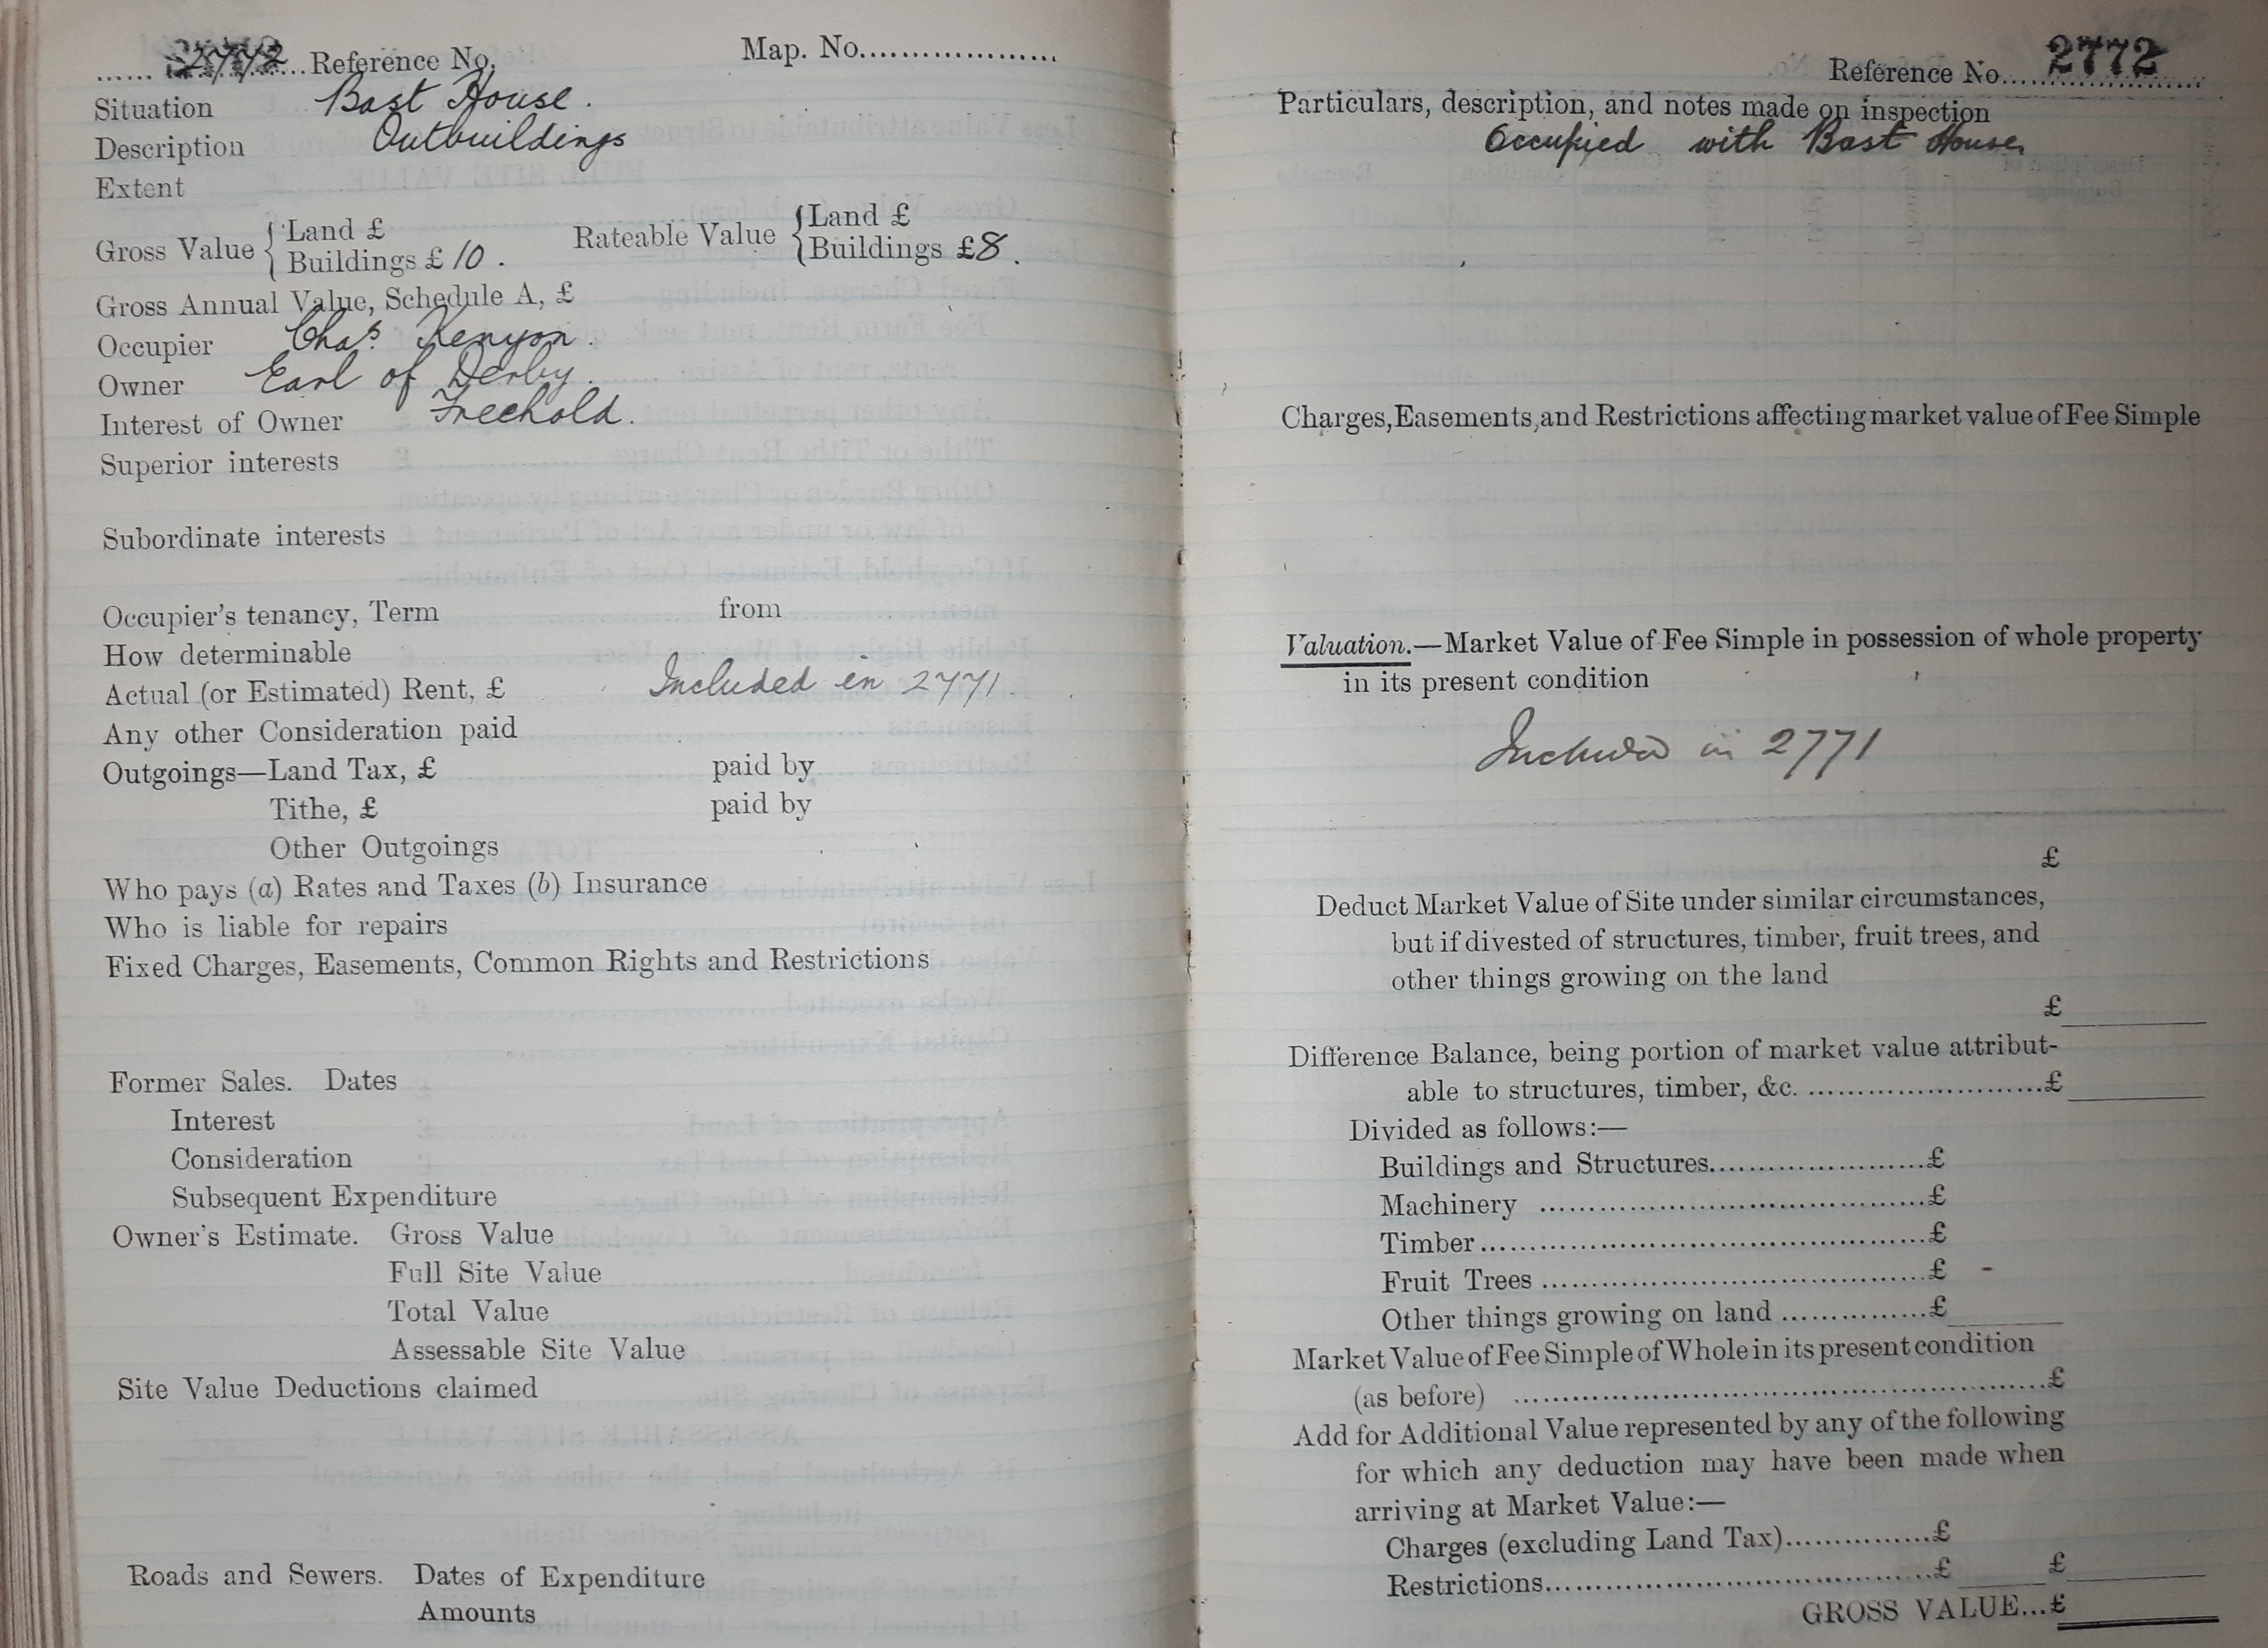 ...... 2772 ...Reference No.
Map. No....................
Situation Bast House.
Description Outbuildings
Extent
Gross Value { Land £
Buildings £ 10.
Rateable Value { Land £
Buildings £8.
Gross Annual Value, Schedule A, £
Occupier Chas. Kenyon.
Owner Earl of Derby.
Interest of Owner Freehold.
Superior interests
Subordinate interests
Occupier's tenancy, Term from
How determinable
Actual (or Estimated) Rent, £ Included in 2771.
Any other Consideration paid
Outgoings—Land Tax, £ paid by
Tithe, £ paid by
Other Outgoings
Who pays (a) Rates and Taxes (b) Insurance
Who is liable for repairs
Fixed Charges, Easements, Common Rights and Restrictions
Former Sales. Dates
Interest
Consideration
Subsequent Expenditure
Owner's Estimate. Gross Value
Full Site Value
Total Value
Assessable Site Value
Site Value Deductions claimed
Roads and Sewers. Dates of Expenditure
Amounts
Reference No.... 2772
Particulars, description, and notes made on inspection
Occupied with Bast House
Charges, Easements, and Restrictions affecting market value of Fee Simple
Valuation.—Market Value of Fee Simple in possession of whole property
in its present condition
Included in 2771
£
Deduct Market Value of Site under similar circumstances,
but if divested of structures, timber, fruit trees, and
other things growing on the land
£
Difference Balance, being portion of market value attribut-
able to structures, timber, &c. ..........................£
Divided as follows:—
Buildings and Structures........................£
Machinery ..........................................£
Timber................................................£
Fruit Trees ..........................................£ -
Other things growing on land ................£
Market Value of Fee Simple of Whole in its present condition
(as before) ..........................................................£
Add for Additional Value represented by any of the following
for which any deduction may have been made when
arriving at Market Value:—
Charges (excluding Land Tax)................£
Restrictions..........................................£ £
GROSS VALUE...£